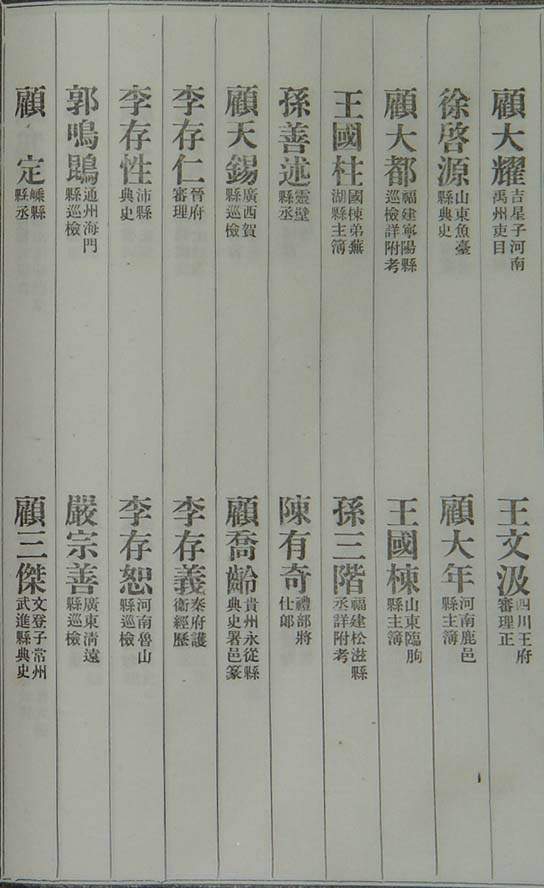 顧大耀 吉星子河南禹州吏目
王文汲 四川王府審理正
徐啓源 山東魚臺縣典史
顧大年 河南鹿邑縣主簿
顧大都 福建寧陽縣巡檢詳附考
王國棟 山東臨朐縣主簿
王國柱 國棟弟蕪湖縣主簿
孫三階 福建松滋縣丞詳附考
孫善述 靈璧縣丞
陳有奇 禮部將仕郎
顧天錫 廣西賀縣巡檢
顧喬齡 貴州永從縣典史署邑篆
李存仁 晉府審理
李存義 秦府護衛經歷
李存性 沛縣典史
李存恕 河南魯山縣巡檢
郭鳴鵾 通州海門縣巡檢
嚴宗善 廣東清遠縣巡檢
顧定 嵊縣縣丞
顧三傑 文登子常州武進縣典史